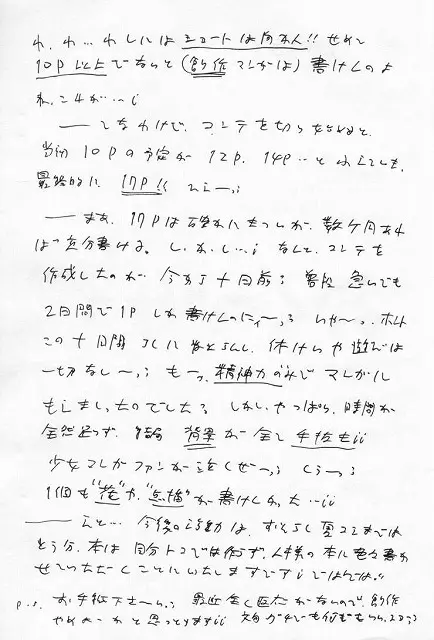 わ、わ…わしにはショートは向かん!! せめて
10P以上でないと(創作マンガは)書けんのよ
ね、これが…i
――てなわけで、コンテを切り始めると、
当初10Pの予定が12P、14P…と
最終的に 17P!!
――まあ、17Pは確かにきついが、数ヶ月あれ
ば充分書ける。しかし…i なんと、コンテを
作成したのが 今から十日前; 普段 急いでも
2日間で1Pしか書けんのにィ〜っ; いや〜っ、ホント
この十日間 休けいや遊びは
一切なし〜っ; もー、精神力のみでマンガに
しかし、やっぱり、時間が
全然足らず、結局 背景が全て手抜きii
少女マンガファンが泣くぜーっ; くぅーっ;
1個も"花"や"点描"が書けんかった…ii
――えと… 今後の活動は、おそらく夏コミまでは
とう分、本は自分トコでは作らず、人様の本に書か
せていただくことにいたしますですi ではでは。
P.S. お手紙下さーい; 最近全く反応がないので、創作
やめよーかと思っとりますii